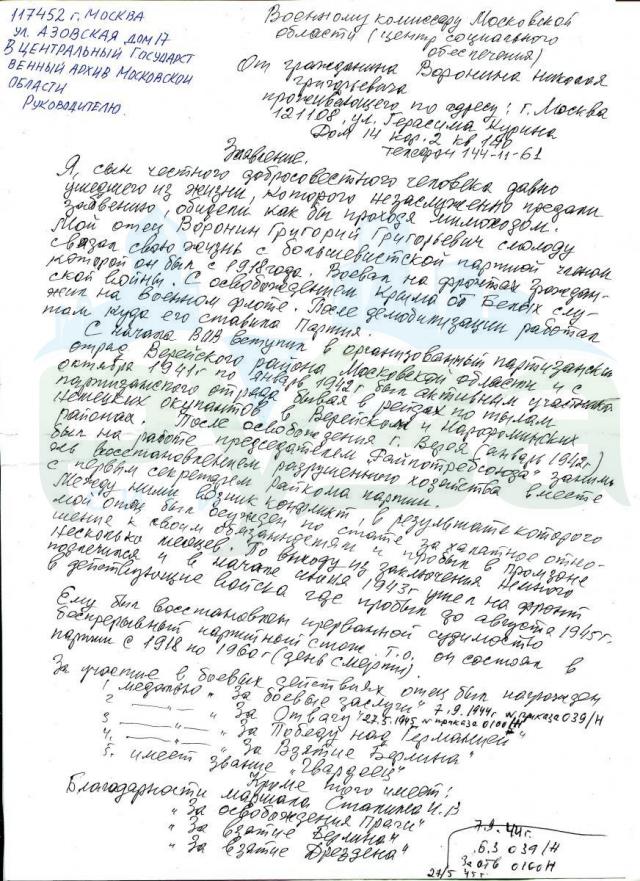 117452 г. МОСКВА
ул. АЗОВСКАЯ ДОМ 17
В ЦЕНТРАЛЬНЫЙ ГОСУДАРСТ
ВЕННЫЙ АРХИВ МОСКОВСКОЙ
ОБЛАСТИ
РУКОВОДИТЕЛЮ
Военному комиссару Московской
области (центр социального
обеспечения)
От гражданина Воронина Николая
Григорьевича
проживающего по адресу: г. Москва
121108, ул. Герасима Курина
Дом 14 кор. 2 кв 140
телефон 144-11-61
Заявление.
Я, сын честного добросовестного человека давно
ушедшего из жизни, которого незаслуженно предали
забвению, обидели как бы проходя мимоходом.
Мой отец Воронин Григорий Григорьевич смолоду
связал свою жизнь с большевистской партией членом
которой он был с 1918 года. Воевал на фронтах граждан-
ской войны. С освобождением Крыма от Белых слу-
жил на военном флоте. После демобилизации работал
там куда его ставила Партия.
С начала ВОВ вступил в организованный партизанский
отряд Верейского района Московской области и с
октября 1941г по январь 1942г был активным участником
партизанского отряда бывая в рейдах по тылам
немецких окупантов в Верейском и Нарофоминских
районах. После освобождения г. Верея (январь 1942г)
был на работе председателем Райпотребсоюза" занима
ясь восстановлением разрушенного хозяйства вместе
с первым секретарем райкома партии.
Между ними возник конфликт, в результате которого
мой отец был осужден по статье за халатное отно-
шение к своим обязанностям и пробыл в Промзоне
несколько месяцев. По выходу из заключения немного
подлечился и в начале июня 1943г ушел на фронт
в действующие войска где пробыл до августа 1945г.
Ему был восстановлен прерванный судимостью
беспрерывный партийный стаж. т.о. он состоял в
партии с 1918 по 1960г (день смерти).
За участие в боевых действиях отец был награжден
1 медалью "За боевые заслуги" 7.9.1944г. № приказа 039/Н
2 —"— "За Отвагу" 27.5.1945 № приказа 0160/Н
3 —"— "За Победу над Германией"
4. —"— "За Взятие Берлина"
5. имеет звание "Гвардеец"
Кроме того имеет:
Благодарности маршала Сталина И.В
"За освобождения Праги"
"За взятие Берлина"
"За взятие Дрездена"
7.9. 44г.
Б.З 039/Н
За ОТВ 0160Н
27/5 45г.